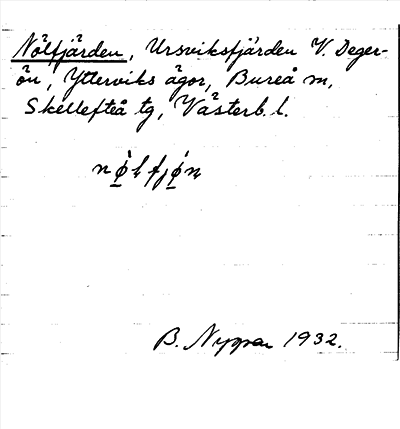 Nölfjärden, Ursviksfjärden V. Deger-
ön, Ytterviks ägor, Bureå m,
Skellefteå tg, Västerb. l.
B. Nygren 1932.